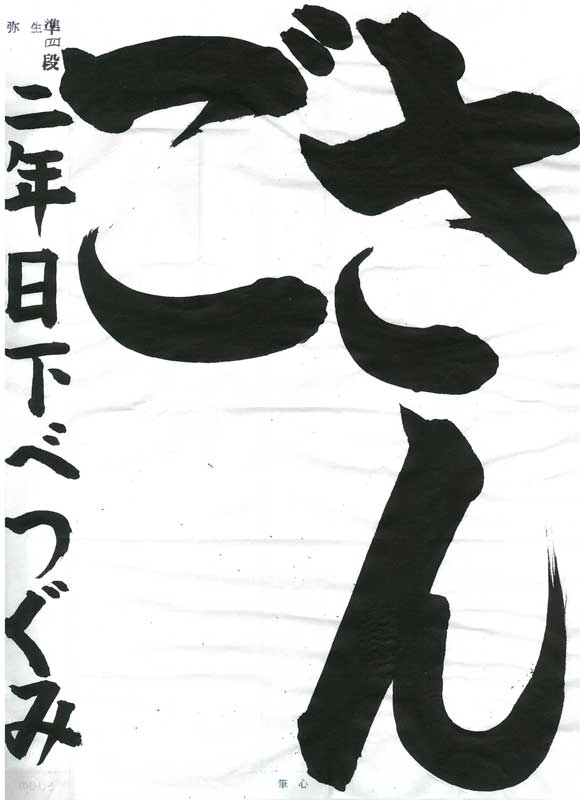 さん
ご
準四段
弥生
二年日下べつぐみ
筆心